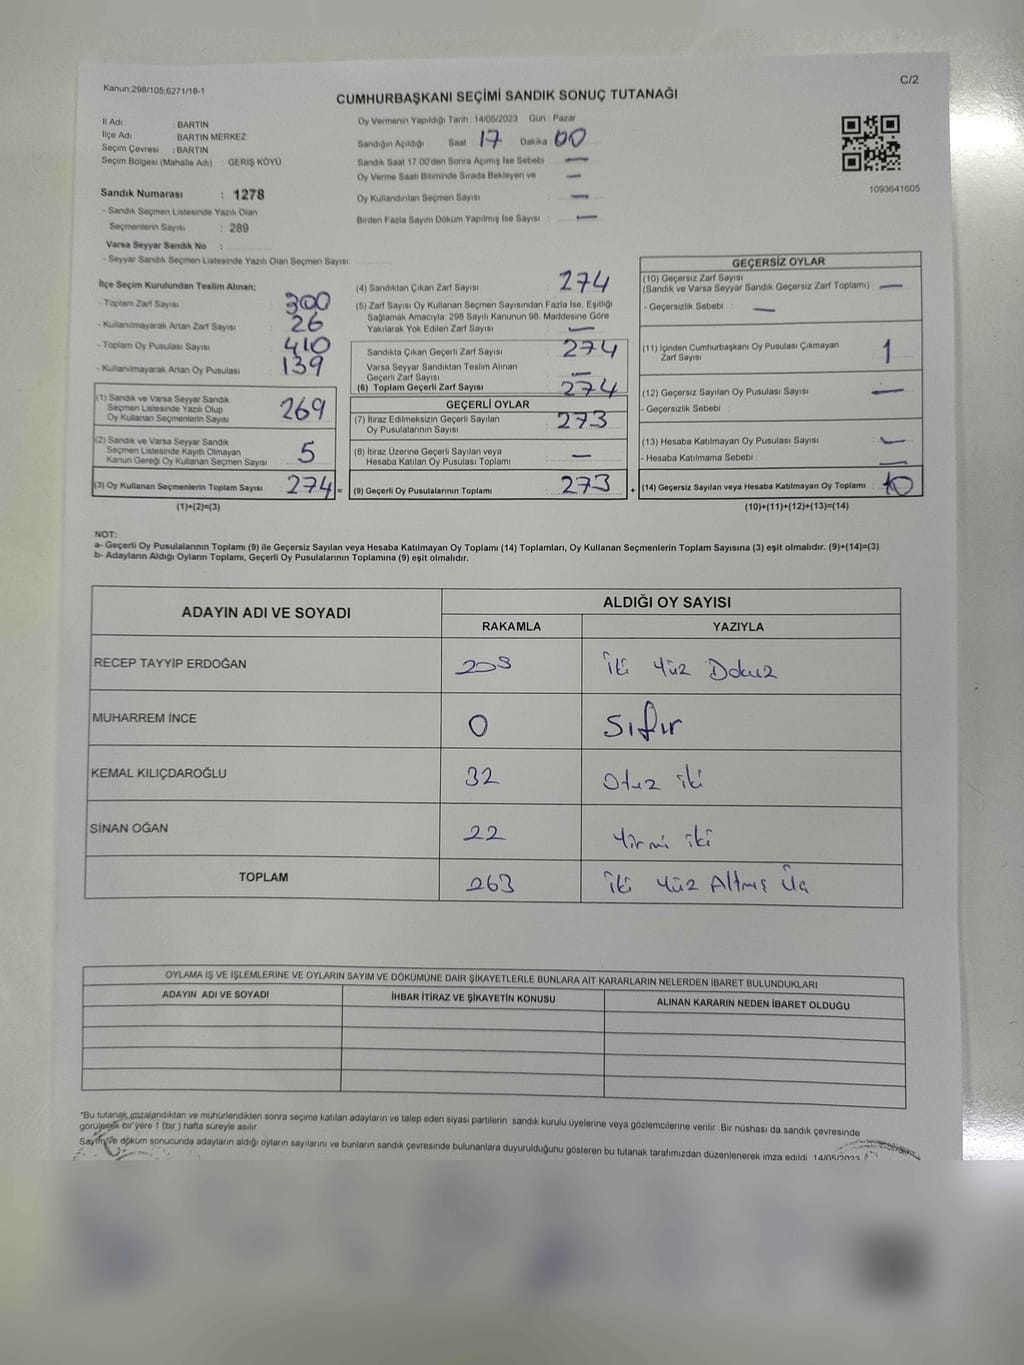 Kanun:298/105;6271/18-1
C/2
CUMHURBAŞKANI SEÇİMİ SANDIK SONUÇ TUTANAĞI
İl Adı : BARTIN
İlçe Adı : BARTIN MERKEZ
Seçim Çevresi : BARTIN
Seçim Bölgesi (Mahalle Adı) : GERİŞ KÖYÜ
Sandık Numarası : 1278
- Sandık Seçmen Listesinde Yazılı Olan
Seçmenlerin Sayısı : 289
Varsa Seyyar Sandık No :
- Seyyar Sandık Seçmen Listesinde Yazılı Olan Seçmen Sayısı
Oy Vermenin Yapıldığı Tarih : 14/05/2023 Gün : Pazar
Sandığın Açıldığı Saat : 17 Dakika : 00
Sandık Saat 17:00'den Sonra Açımış İse Sebebi : —
Oy Verme Saati Bitiminde Sırada Bekleyen ve —
Oy Kullandırılan Seçmen Sayısı : —
Birden Fazla Sayım Döküm Yapılmış İse Sayısı : —
1093641605
İlçe Seçim Kurulundan Teslim Alınan;
- Toplam Zarf Sayısı : 300
- Kullanılmayarak Artan Zarf Sayısı : 26
- Toplam Oy Pusulası Sayısı : 410
- Kullanılmayarak Artan Oy Pusulası : 139
(1) Sandık ve Varsa Seyyar Sandık
Seçmen Listesinde Yazılı Olup
Oy Kullanan Seçmenlerin Sayısı : 269
(2) Sandık ve Varsa Seyyar Sandık
Seçmen Listesinde Kayıtlı Olmayan
Kanun Gereği Oy Kullanan Seçmen Sayısı : 5
(3) Oy Kullanan Seçmenlerin Toplam Sayısı : 274 =
(1)+(2)=(3)
(4) Sandıktan Çıkan Zarf Sayısı : 274
(5) Zarf Sayısı Oy Kullanan Seçmen Sayısından Fazla İse, Eşitliği
Sağlamak Amacıyla, 298 Sayılı Kanunun 98. Maddesine Göre
Yakılarak Yok Edilen Zarf Sayısı : —
Sandıkta Çıkan Geçerli Zarf Sayısı : 274
Varsa Seyyar Sandıktan Teslim Alınan
Geçerli Zarf Sayısı : —
(6) Toplam Geçerli Zarf Sayısı : 274
GEÇERLİ OYLAR
(7) İtiraz Edilmeksizin Geçerli Sayılan
Oy Pusulalarının Sayısı : 273
(8) İtiraz Üzerine Geçerli Sayılan veya
Hesaba Katılan Oy Pusulası Toplamı : —
(9) Geçerli Oy Pusulalarının Toplamı : 273 +
GEÇERSİZ OYLAR
(10) Geçersiz Zarf Sayısı
(Sandık ve Varsa Seyyar Sandık Geçersiz Zarf Toplamı) : —
- Geçersizlik Sebebi : —
(11) İçinden Cumhurbaşkanı Oy Pusulası Çıkmayan
Zarf Sayısı : 1
(12) Geçersiz Sayılan Oy Pusulası Sayısı : —
- Geçersizlik Sebebi :
(13) Hesaba Katılmayan Oy Pusulası Sayısı : —
- Hesaba Katılmama Sebebi : —
(14) Geçersiz Sayılan veya Hesaba Katılmayan Oy Toplamı :
(10)+(11)+(12)+(13)=(14)
NOT:
a- Geçerli Oy Pusulalarının Toplamı (9) ile Geçersiz Sayılan veya Hesaba Katılmayan Oy Toplamı (14) Toplamları, Oy Kullanan Seçmenlerin Toplam Sayısına (3) eşit olmalıdır. (9)+(14)=(3)
b- Adayların Aldığı Oyların Toplamı, Geçerli Oy Pusulalarının Toplamına (9) eşit olmalıdır.
ADAYIN ADI VE SOYADI ALDIĞI OY SAYISI
RAKAMLA YAZIYLA
RECEP TAYYİP ERDOĞAN 209 İki Yüz Dokuz
MUHARREM İNCE 0 Sıfır
KEMAL KILIÇDAROĞLU 32 Otuz iki
SİNAN OĞAN 22 Yirmi iki
TOPLAM 263 İki Yüz Altmış Üç
OYLAMA İŞ VE İŞLEMLERİNE VE OYLARIN SAYIM VE DÖKÜMÜNE DAİR ŞİKAYETLERLE BUNLARA AİT KARARLARIN NELERDEN İBARET BULUNDUKLARI
ADAYIN ADI VE SOYADI İHBAR İTİRAZ VE ŞİKAYETİN KONUSU ALINAN KARARIN NEDEN İBARET OLDUĞU
*Bu tutanak imzalandıktan ve mühürlendikten sonra seçime katılan adayların ve talep eden siyasi partilerin sandık kurulu üyelerine veya gözlemcilerine verilir. Bir nüshası da sandık çevresinde
görülecek bir yere 1 (bir ) hafta süreyle asılır.
Sayım ve döküm sonucunda adayların aldığı oyların sayılarını ve bunların sandık çevresinde bulunanlara duyurulduğunu gösteren bu tutanak tarafımızdan düzenlenerek imza edildi. 14/05/2023